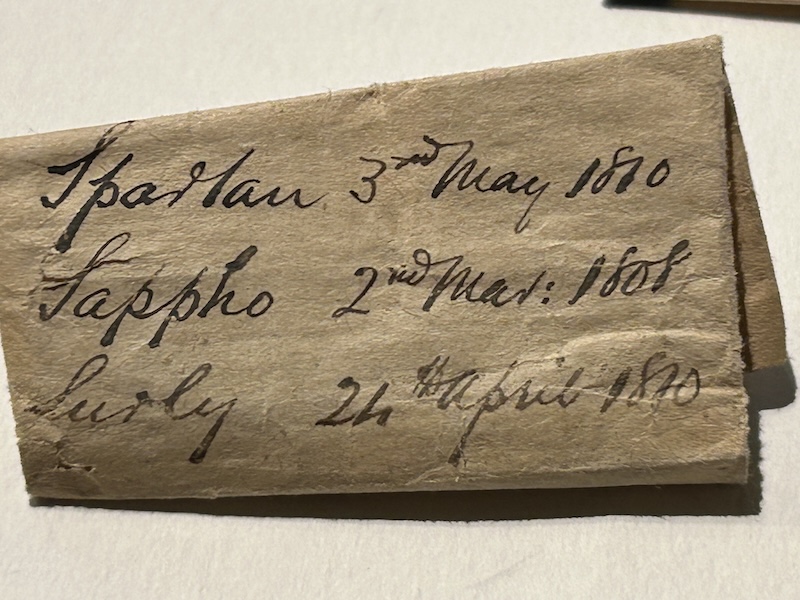 Spartan 3nd May 1810
Sappho 2nd Mar: 1808
Surly 24th April 1810